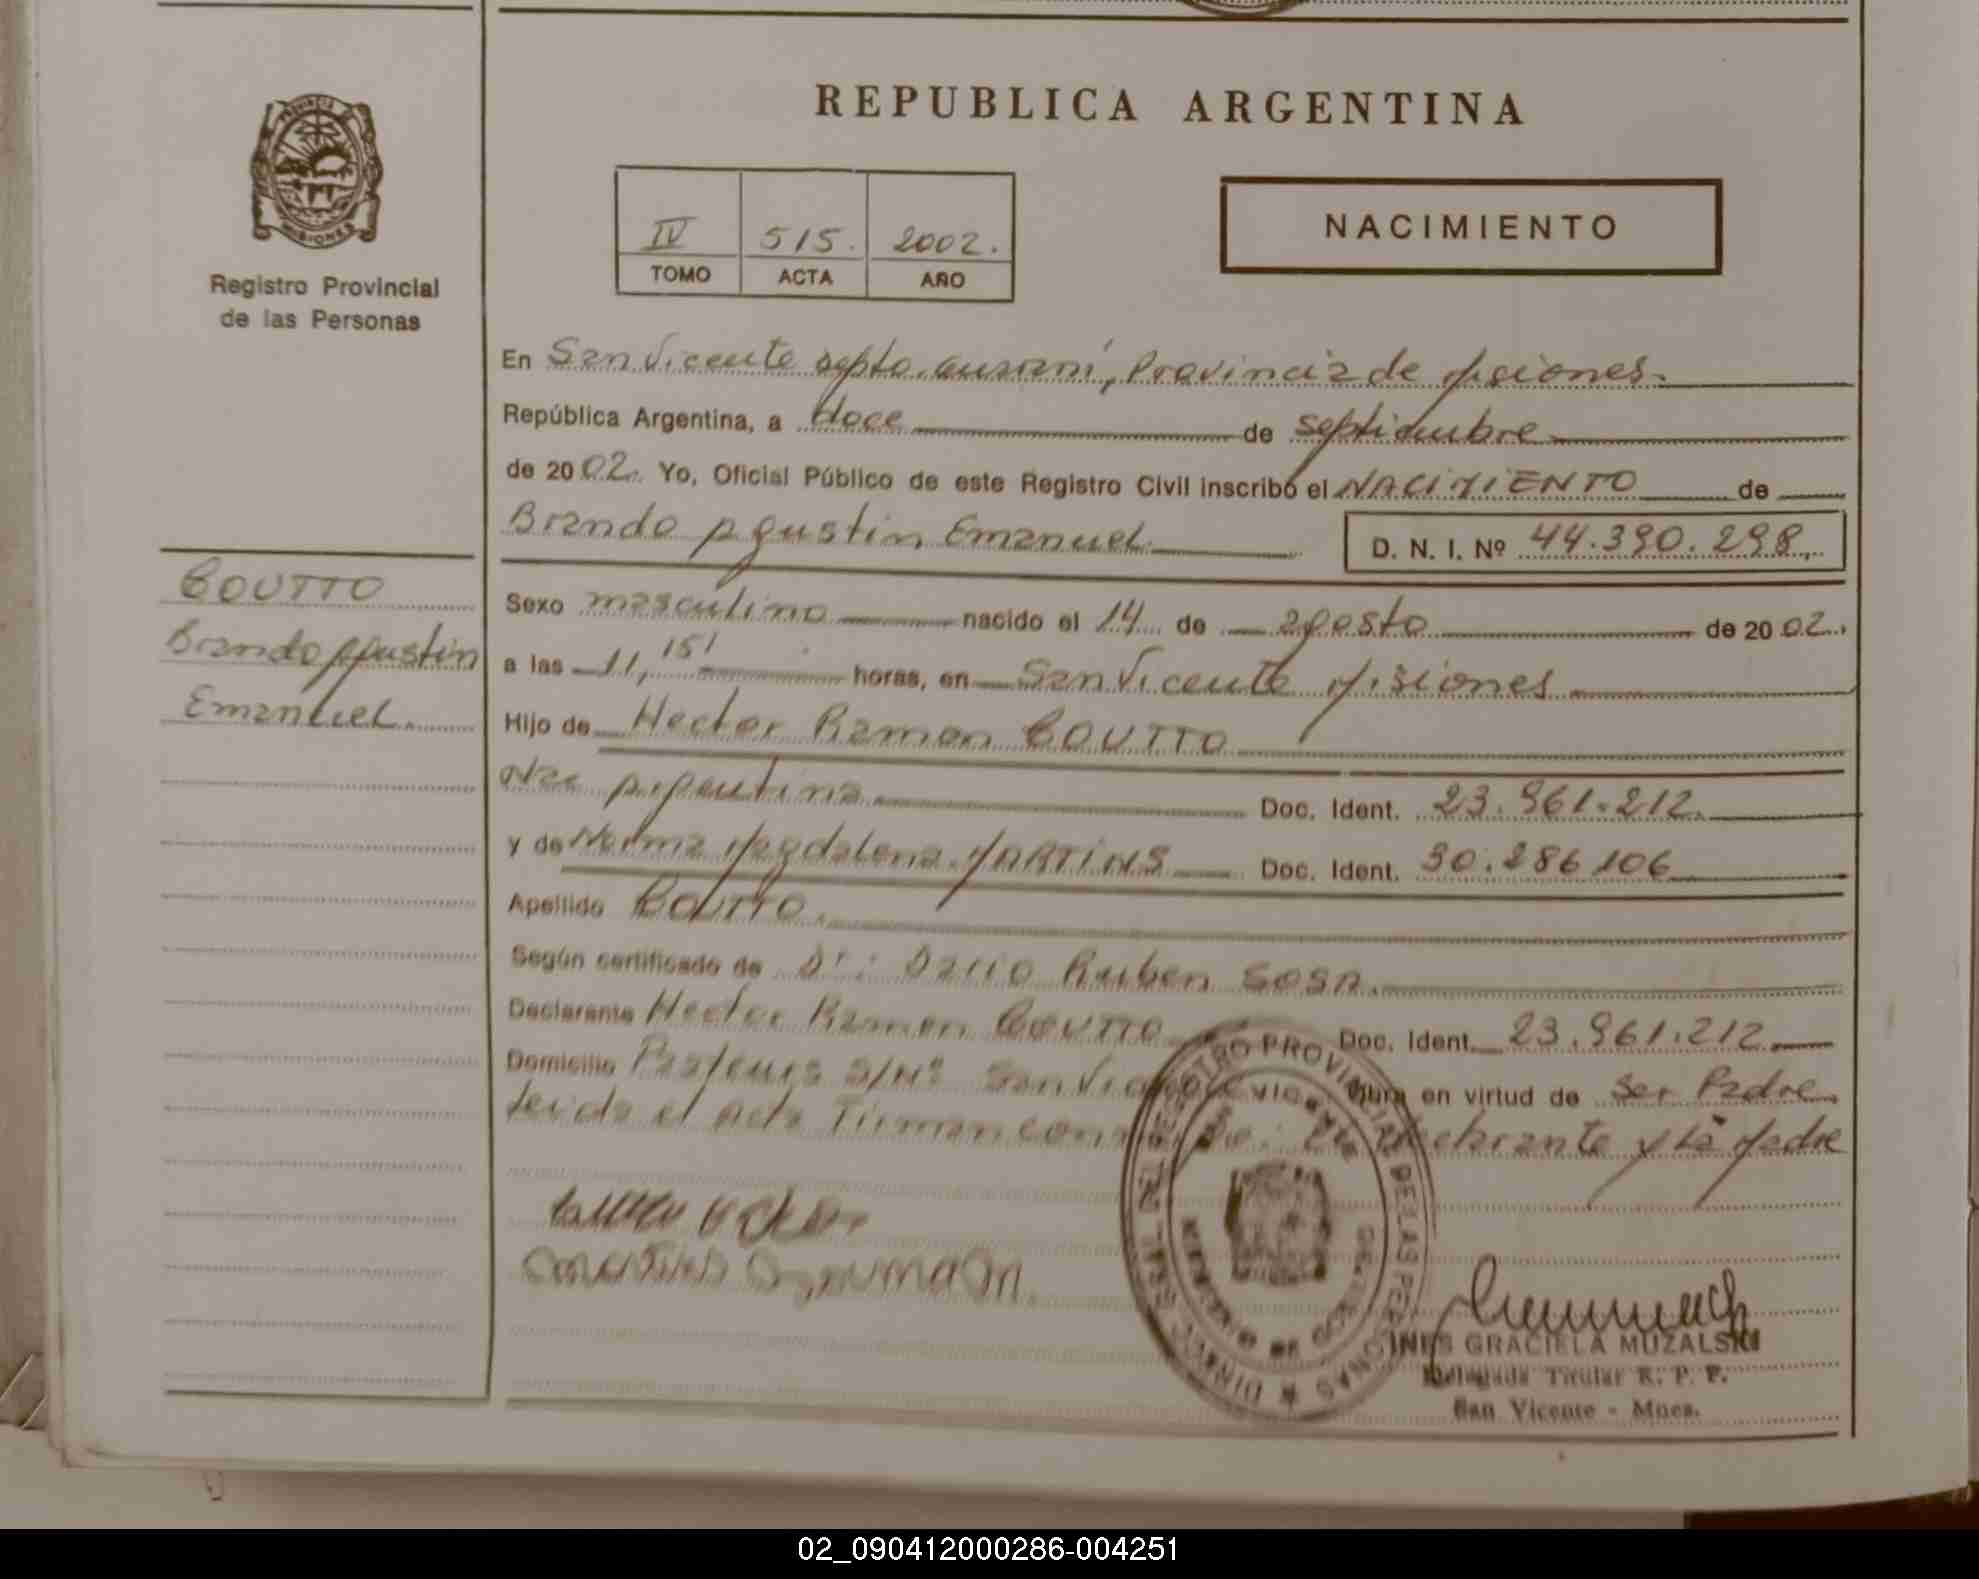 REPUBLICA ARGENTINA
PROVINCIA
MISIONES
Registro Provincial
de las Personas
IV 515. 2002.
TOMO ACTA AÑO
NACIMIENTO
En San Vicente Depto. Guaraní, Provincia de Misiones.
República Argentina, a doce de septiembre
de 2002. Yo, Oficial Público de este Registro Civil inscribo el NACIMIENTO de
Brando Agustin Emanuel D. N. I. Nº 44.390.298
COUTTO
Brando Agustin
Emanuel.
Sexo masculino nacido el 14 de agosto de 2002
a las 11,15' horas, en San Vicente Misiones
Hijo de Hector Ramon COUTTO
Nac Argentina Doc. Ident. 23.961.212.
y de Norma Magdalena MARTINS Doc. Ident. 30.286.106
Apellido COUTTO.
Según certificado de Dr: Dario Ruben SOSA.
Declarante Hector Ramon COUTTO Doc. Ident. 23.961.212
Domicilio S/Nº San Vicente Obra en virtud de Ser Padre
leida el acta Firman conmigo: El declarante y La Madre
INES GRACIELA MUZALSKI
Delegada Titular R. P. P.
San Vicente - Mnes.
02_090412000286-004251